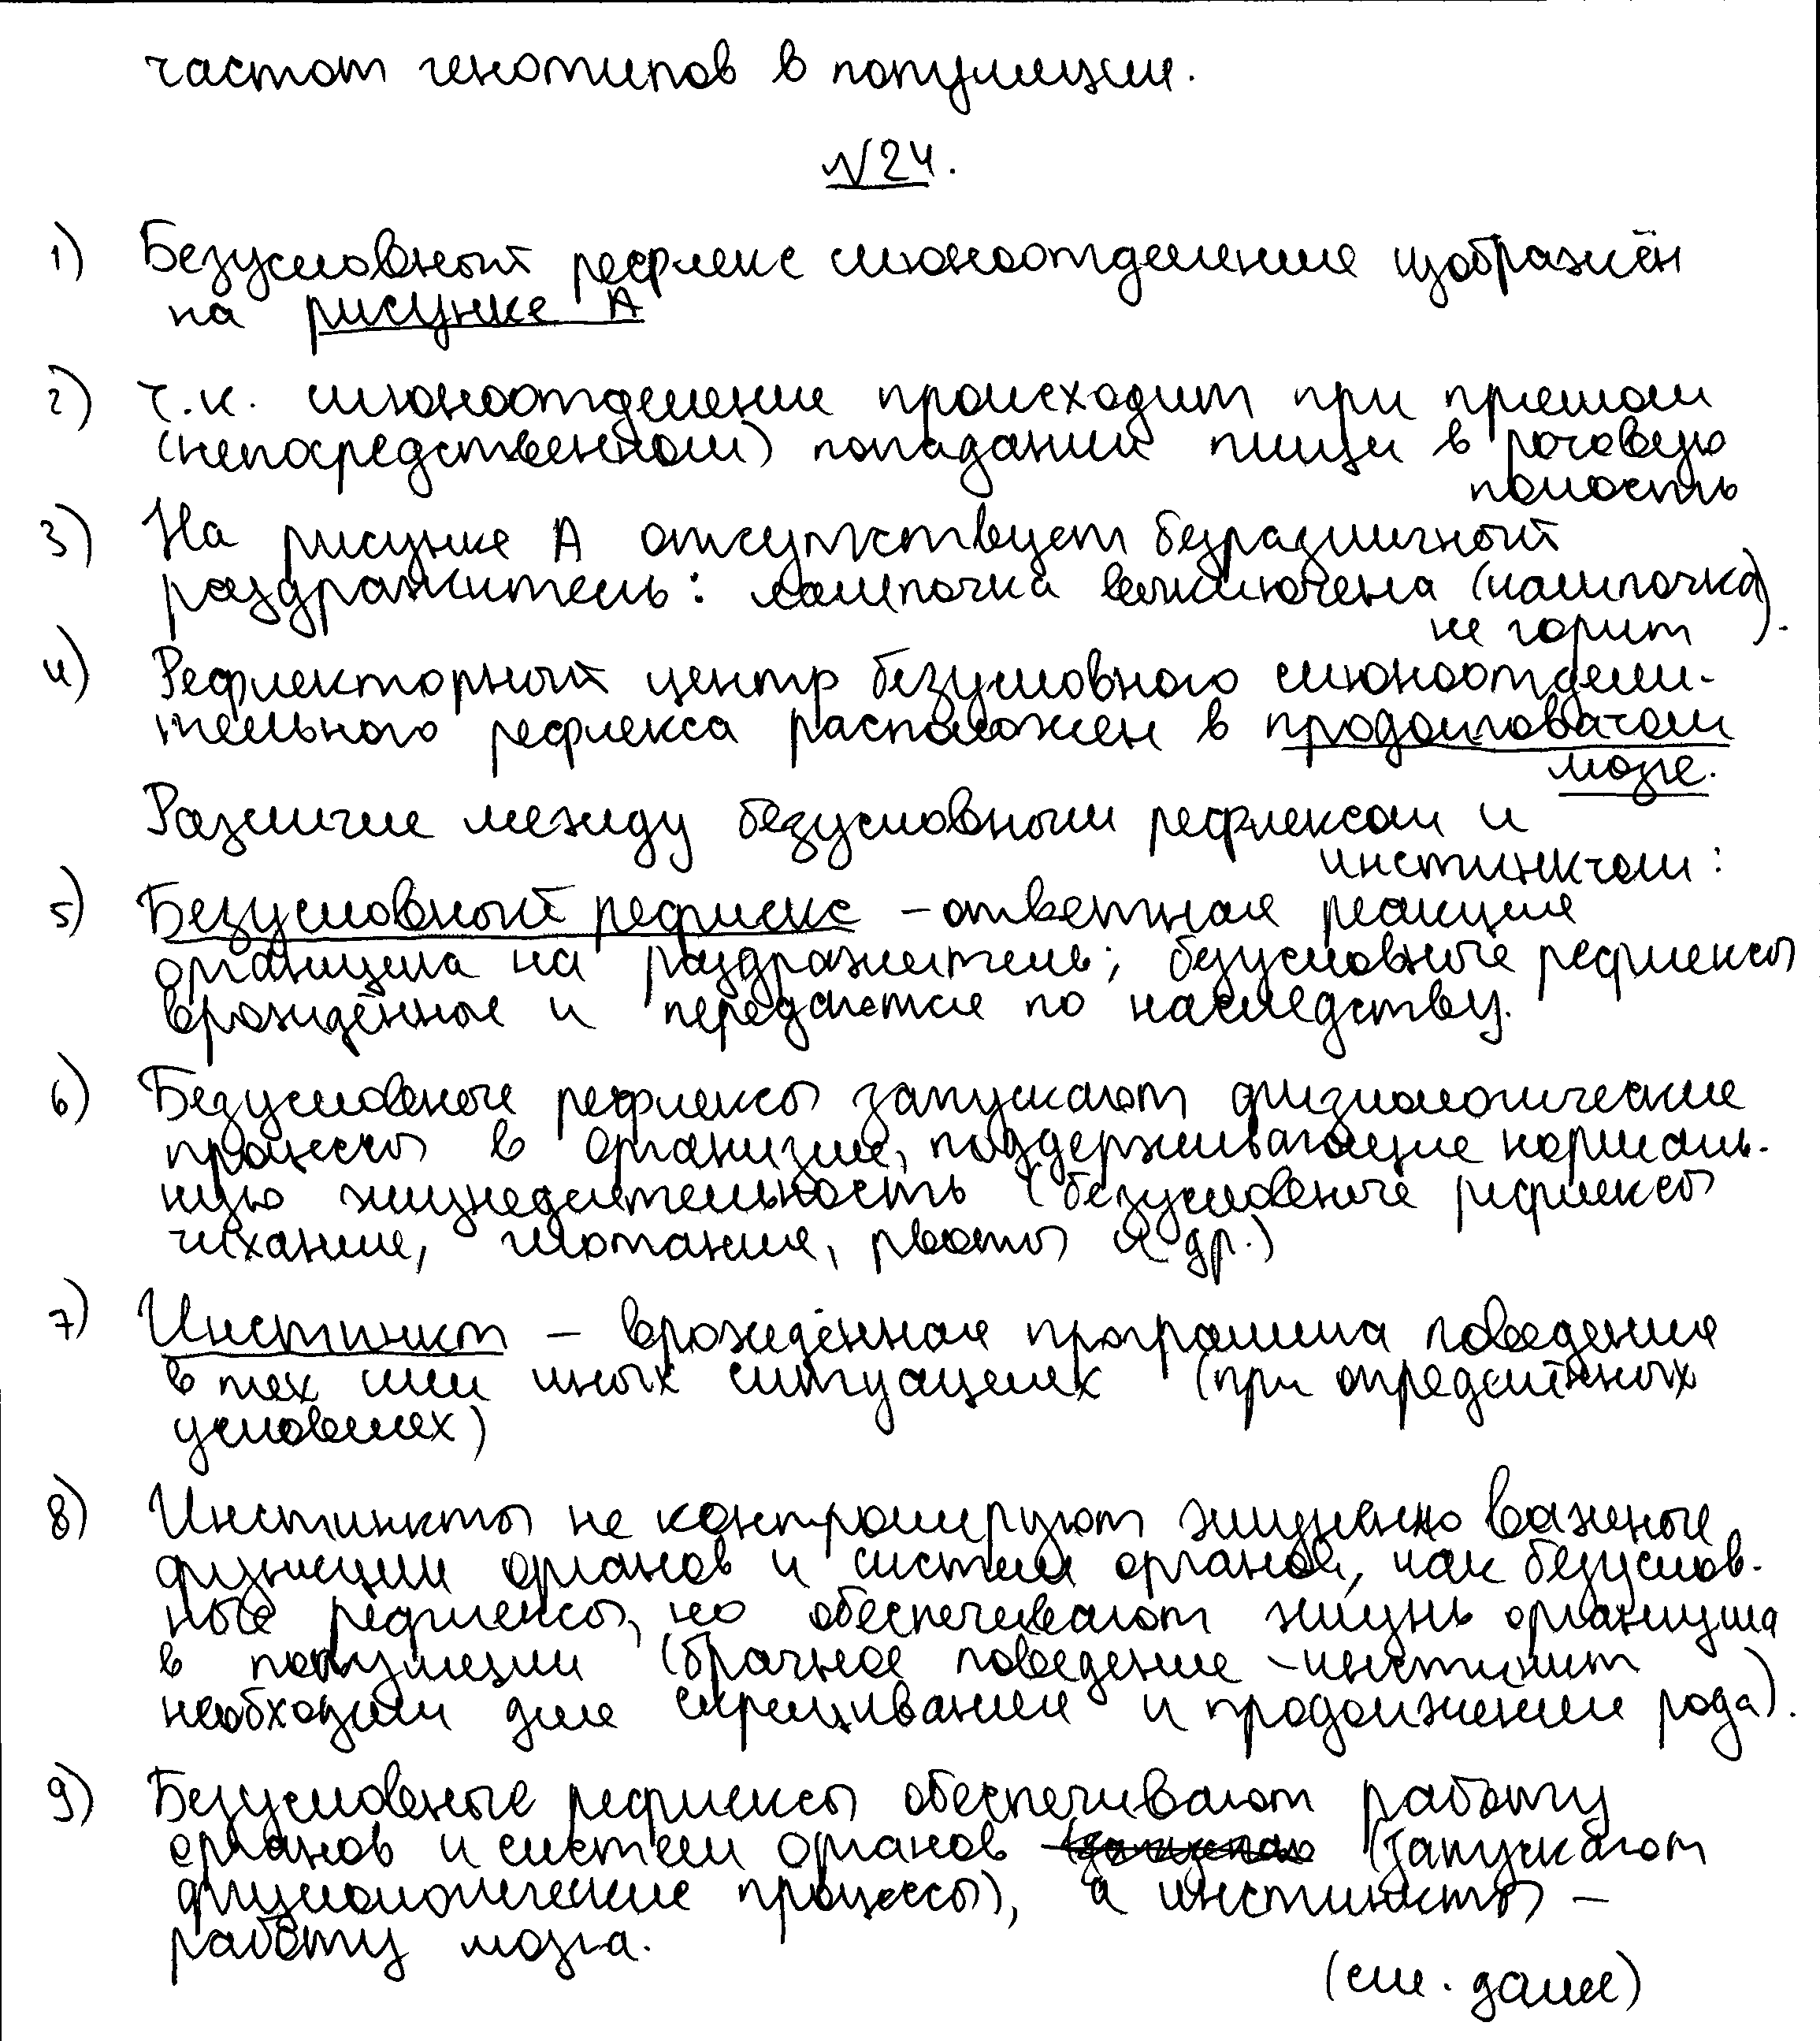 частот генотипов в популяции.
№24.
1) Безусловный рефлекс слюноотделения изображён
на рисунке А
2) т.к. слюноотделение происходит при прямом
(непосредственном) попадании пищи в ротовую
полость
3) На рисунке А отсутствует безразличный
раздражитель: лампочка выключена (лампочка
не горит).
4) Рефлекторный центр безусловного слюноотдели-
тельного рефлекса расположен в продолговатом
мозге.
Различие между безусловным рефлексом и
инстинктом:
5) Безусловный рефлекс – ответная реакция
организма на раздражитель; безусловные рефлексы
врождённые и передаются по наследству.
6) Безусловные рефлексы запускают физиологические
процессы в организме, поддерживающие нормаль-
ную жизнедеятельность (безусловные рефлексы
чихание, глотание, рвоты и др.)
7) Инстинкт – врождённая программа поведения
в тех или иных ситуациях (при определённых
условиях)
8) Инстинкты не контролируют жизненно важные
функции органов и систем органов, как безуслов-
ные рефлексы, но обеспечивают жизнь организма
в популяции (брачное поведение – инстинкт
необходим для скрещивания и продолжения рода).
9) Безусловные рефлексы обеспечивают работу
органов и систем органов (запускают
физиологические процессы), а инстинкты –
работу мозга.
(см. далее)